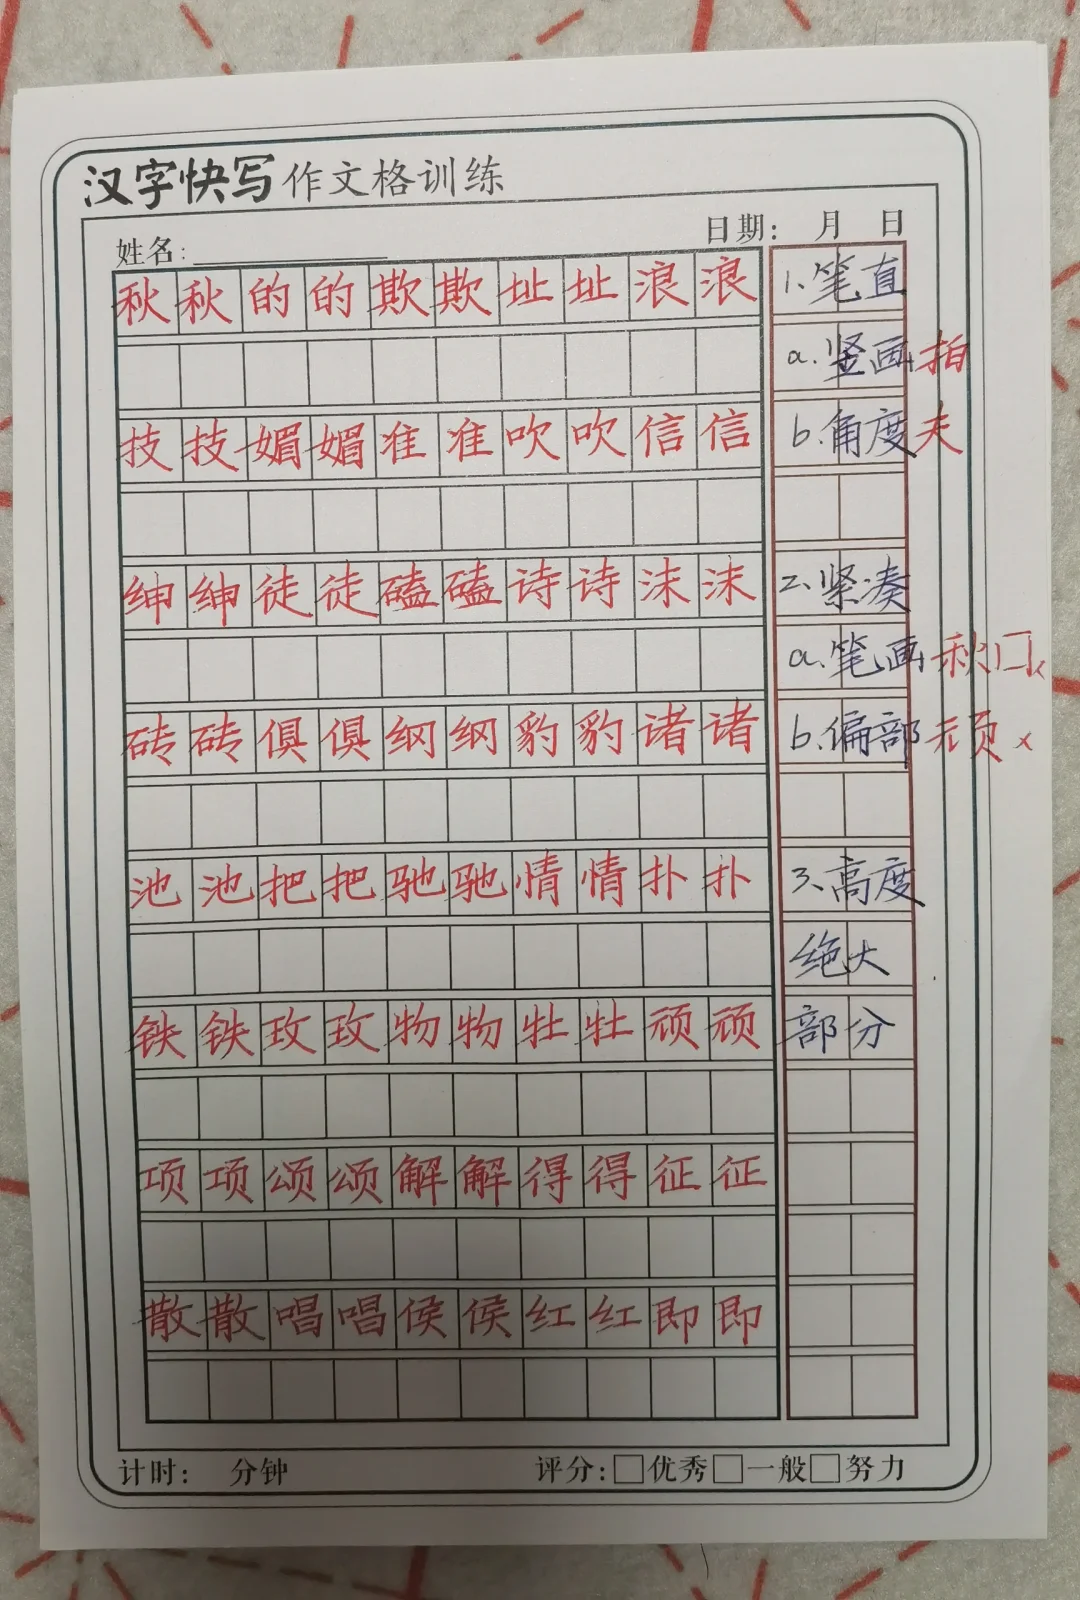 汉字快写作文格训练
姓名: 日期: 月 日
秋秋的的欺欺址址浪浪 1.笔直
a.竖画 拍
技技媚媚准准吹吹信信 b.角度 夫
绅绅徒徒磕磕诗诗沫沫 2.紧凑
a.笔画 秋 x
砖砖俱俱纲纲豹豹诸诸 b.偏部 顽 x
池池把把驰驰情情扑扑 3.高度
绝大
铁铁玫玫物物牡牡顽顽 部分
项项颂颂解解得得征征
散散唱唱侯侯红红即即
计时: 分钟 评分:□优秀□一般□努力